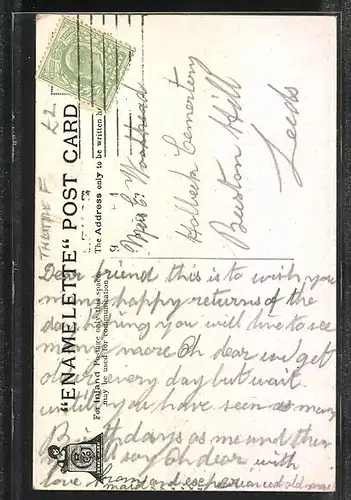 THORPE F £2
"ENAMELETTE" POST CARD
For Inland Postage only this space may be used for communication.
The Address only to be written h
Miss E. Woodhead
Holbeck Cemetery
Beeston Hill
Leeds
Dear friend this is to wish you
many happy returns of the
day hoping you will live to see
many more Oh dear we get
older every day but wait
until you have seen as many
Birthdays as me and then
say Oh dear with
love from an experienced old
maid